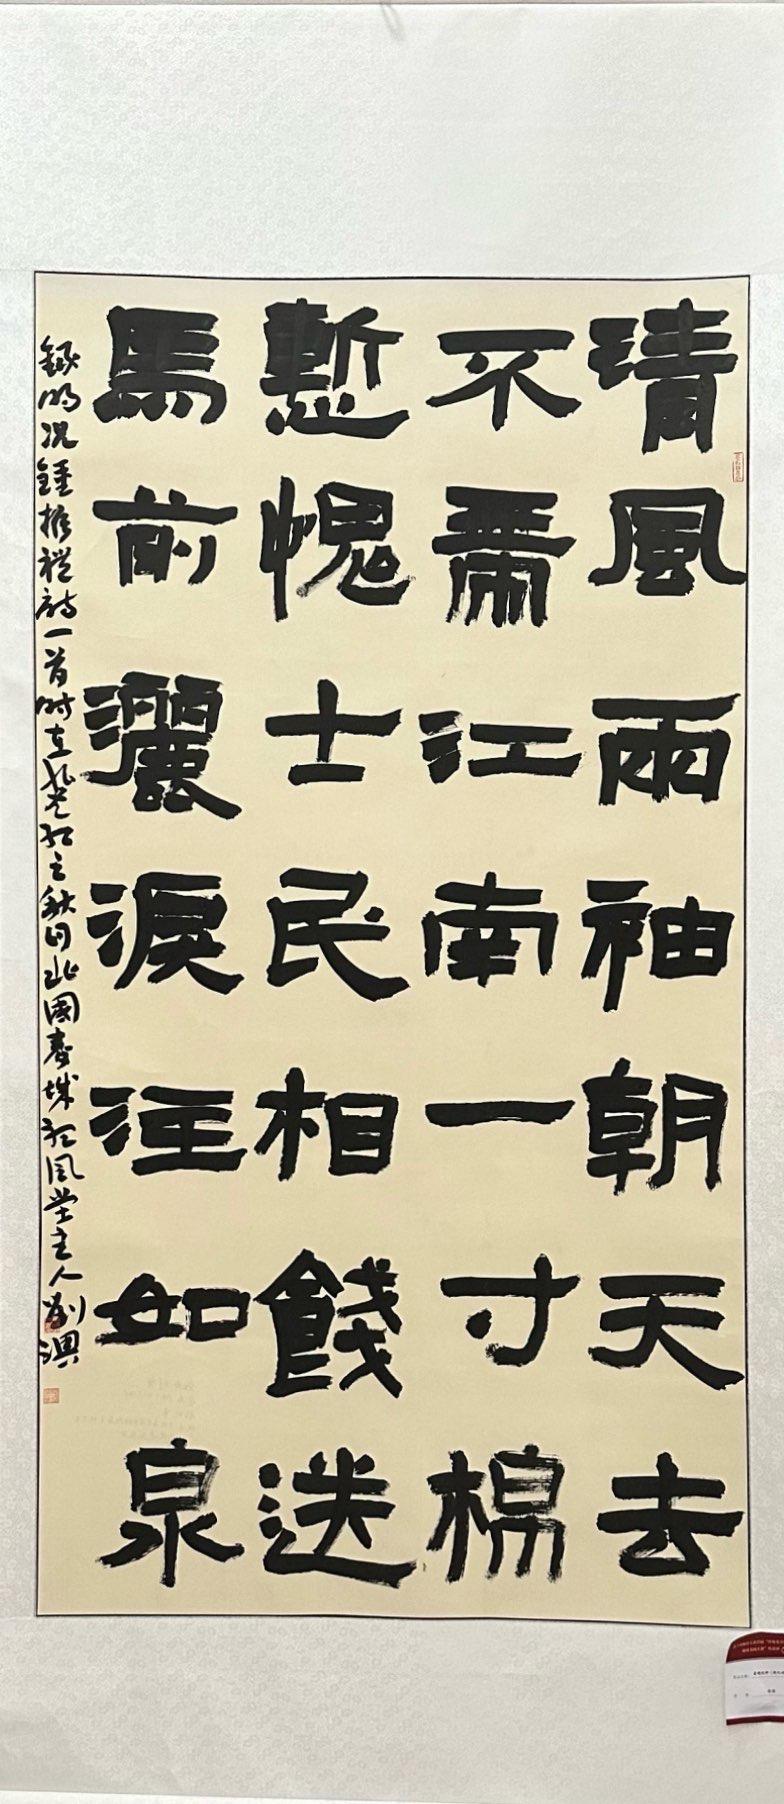 清風兩袖朝天去
不帶江南一寸棉
慙愧士民相餞送
馬前灑淚注如泉
錄明況鍾拒禮詩一首時在癸卯之秋月北國春城
風堂主人劉